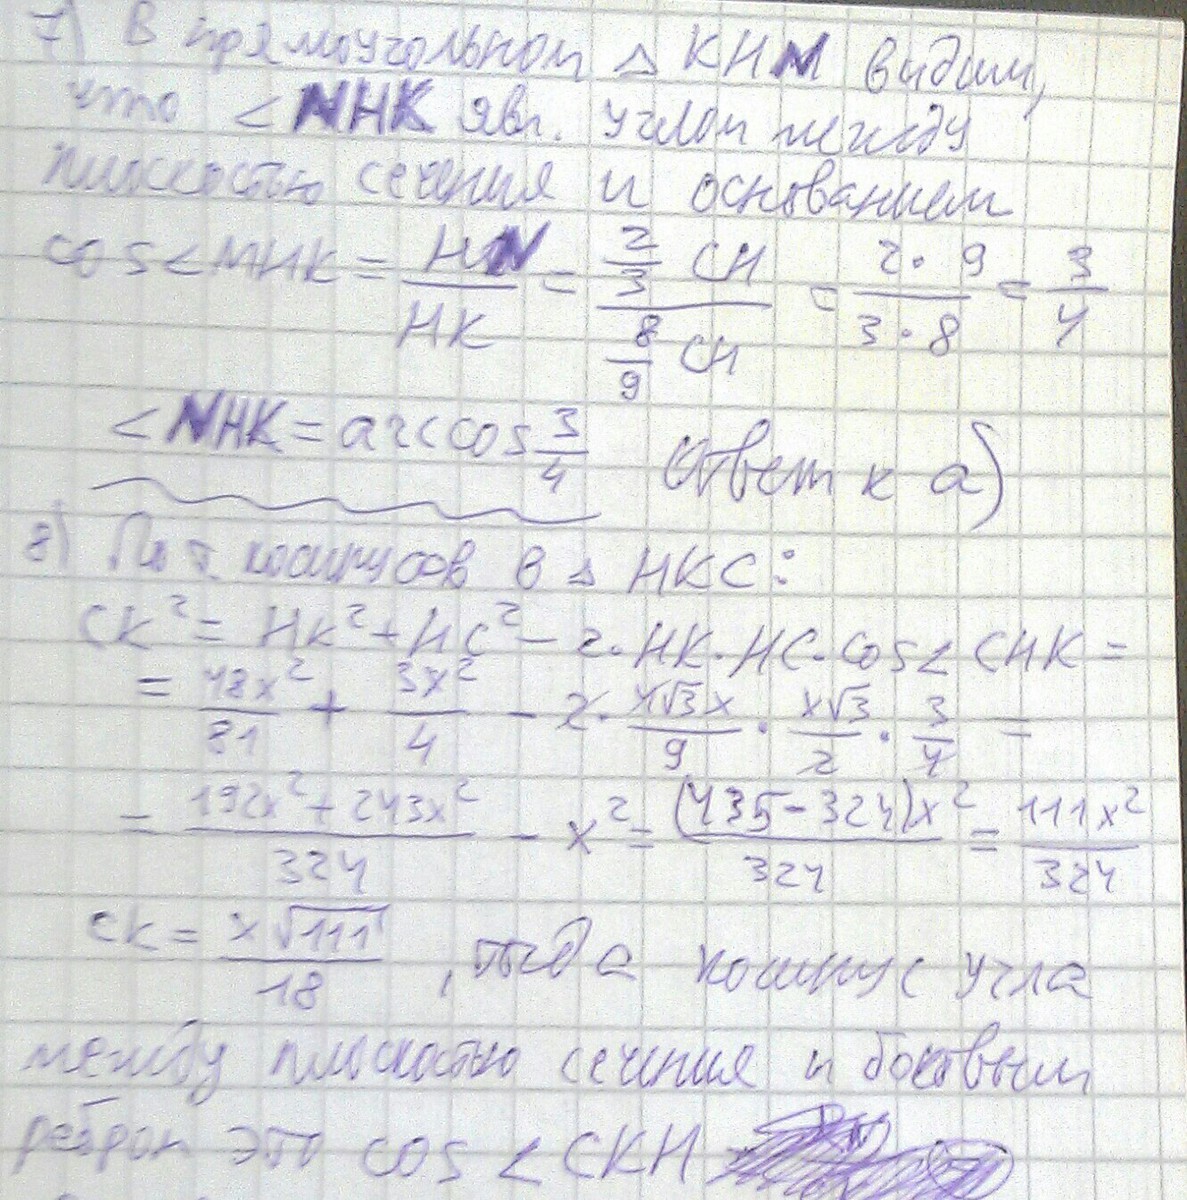 7) В прямоугольном △ KHN видим,
что ∠NHK явл. углом между
плоскостью сечения и основанием
cos∠MHK = HN/HK = (2/3 CH)/(8/9 CH) = (2·9)/(3·8) = 3/4
∠NHK = arccos 3/4 ответ к а)
8) По т. косинусов в △ HKC:
CK² = HK² + HC² - 2·HK·HC·cos∠CHK =
= 48x²/81 + 3x²/4 - 2· 4√3x/9 · x√3/2 · 3/4 =
= (192x² + 243x²)/324 - x² = (435-324)x²/324 = 111x²/324
CK = x√111/18, тогда косинус угла
между плоскостью сечения и боковым
ребром это cos∠CKH